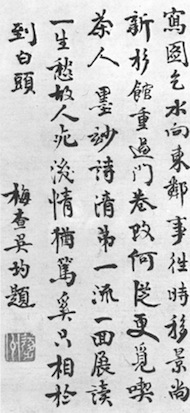 寫圖乞水向東鄰事往時移景尚
新杉館重過門巷改何從更覓喫
茶人 墨妙詩清第一流一回展讀
一生愁故人死後情猶篤奚只相於
到白頭
梅查吳均題